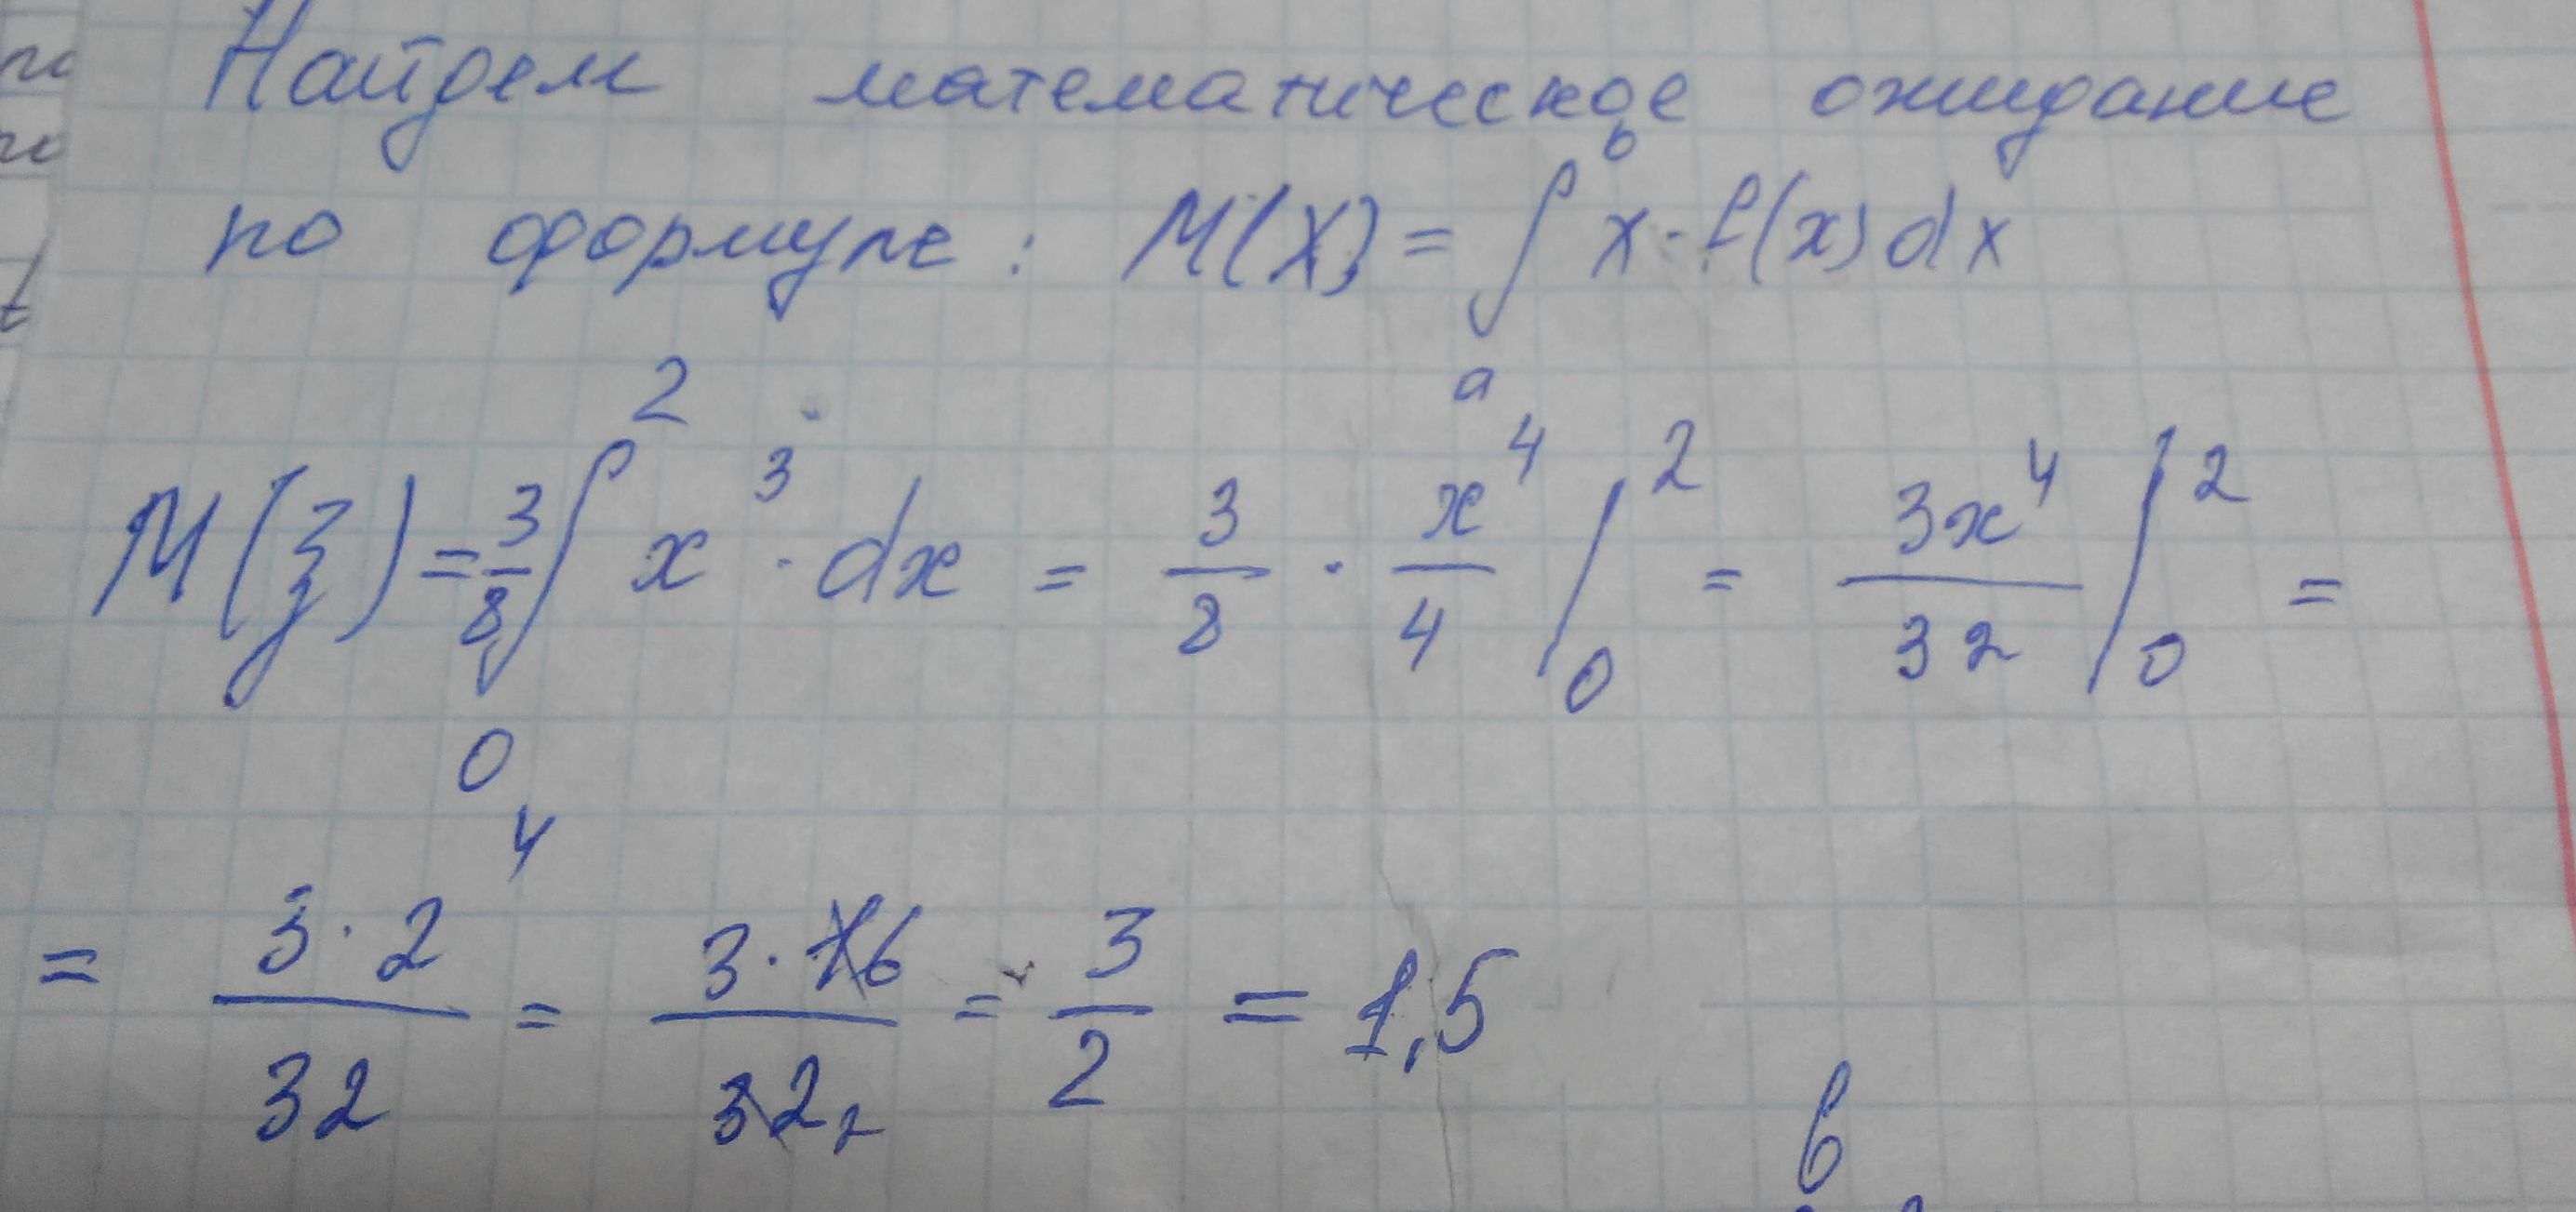 Найдем математическое ожидание
по формуле: M(X) = ∫ₐᵇ x · f(x) dx
M(ξ) = 3/8 ∫₀² x³ · dx = 3/8 · x⁴/4 |₀² = 3x⁴/32 |₀² =
= 3·2⁴/32 = 3·16/32₂ = 3/2 = 1,5